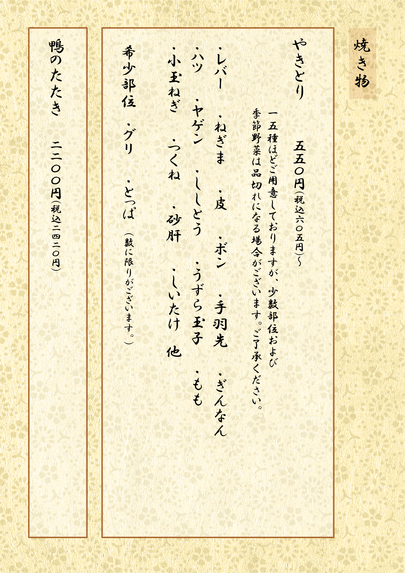 焼き物
やきとり 五五〇円(税込六〇五円)〜
一五種ほどご用意しておりますが、少数部位および
季節野菜は品切れになる場合がございます。ご了承ください。
・レバー ・ねぎま ・皮 ・ボン ・手羽先 ・ぎんなん
・ハツ ・ヤゲン ・ししとう ・うずら玉子 ・もも
・小玉ねぎ ・つくね ・砂肝 ・しいたけ 他
希少部位 ・グリ ・とっぱ (数に限りがございます。)
鴨のたたき 二二〇〇円(税込二四二〇円)